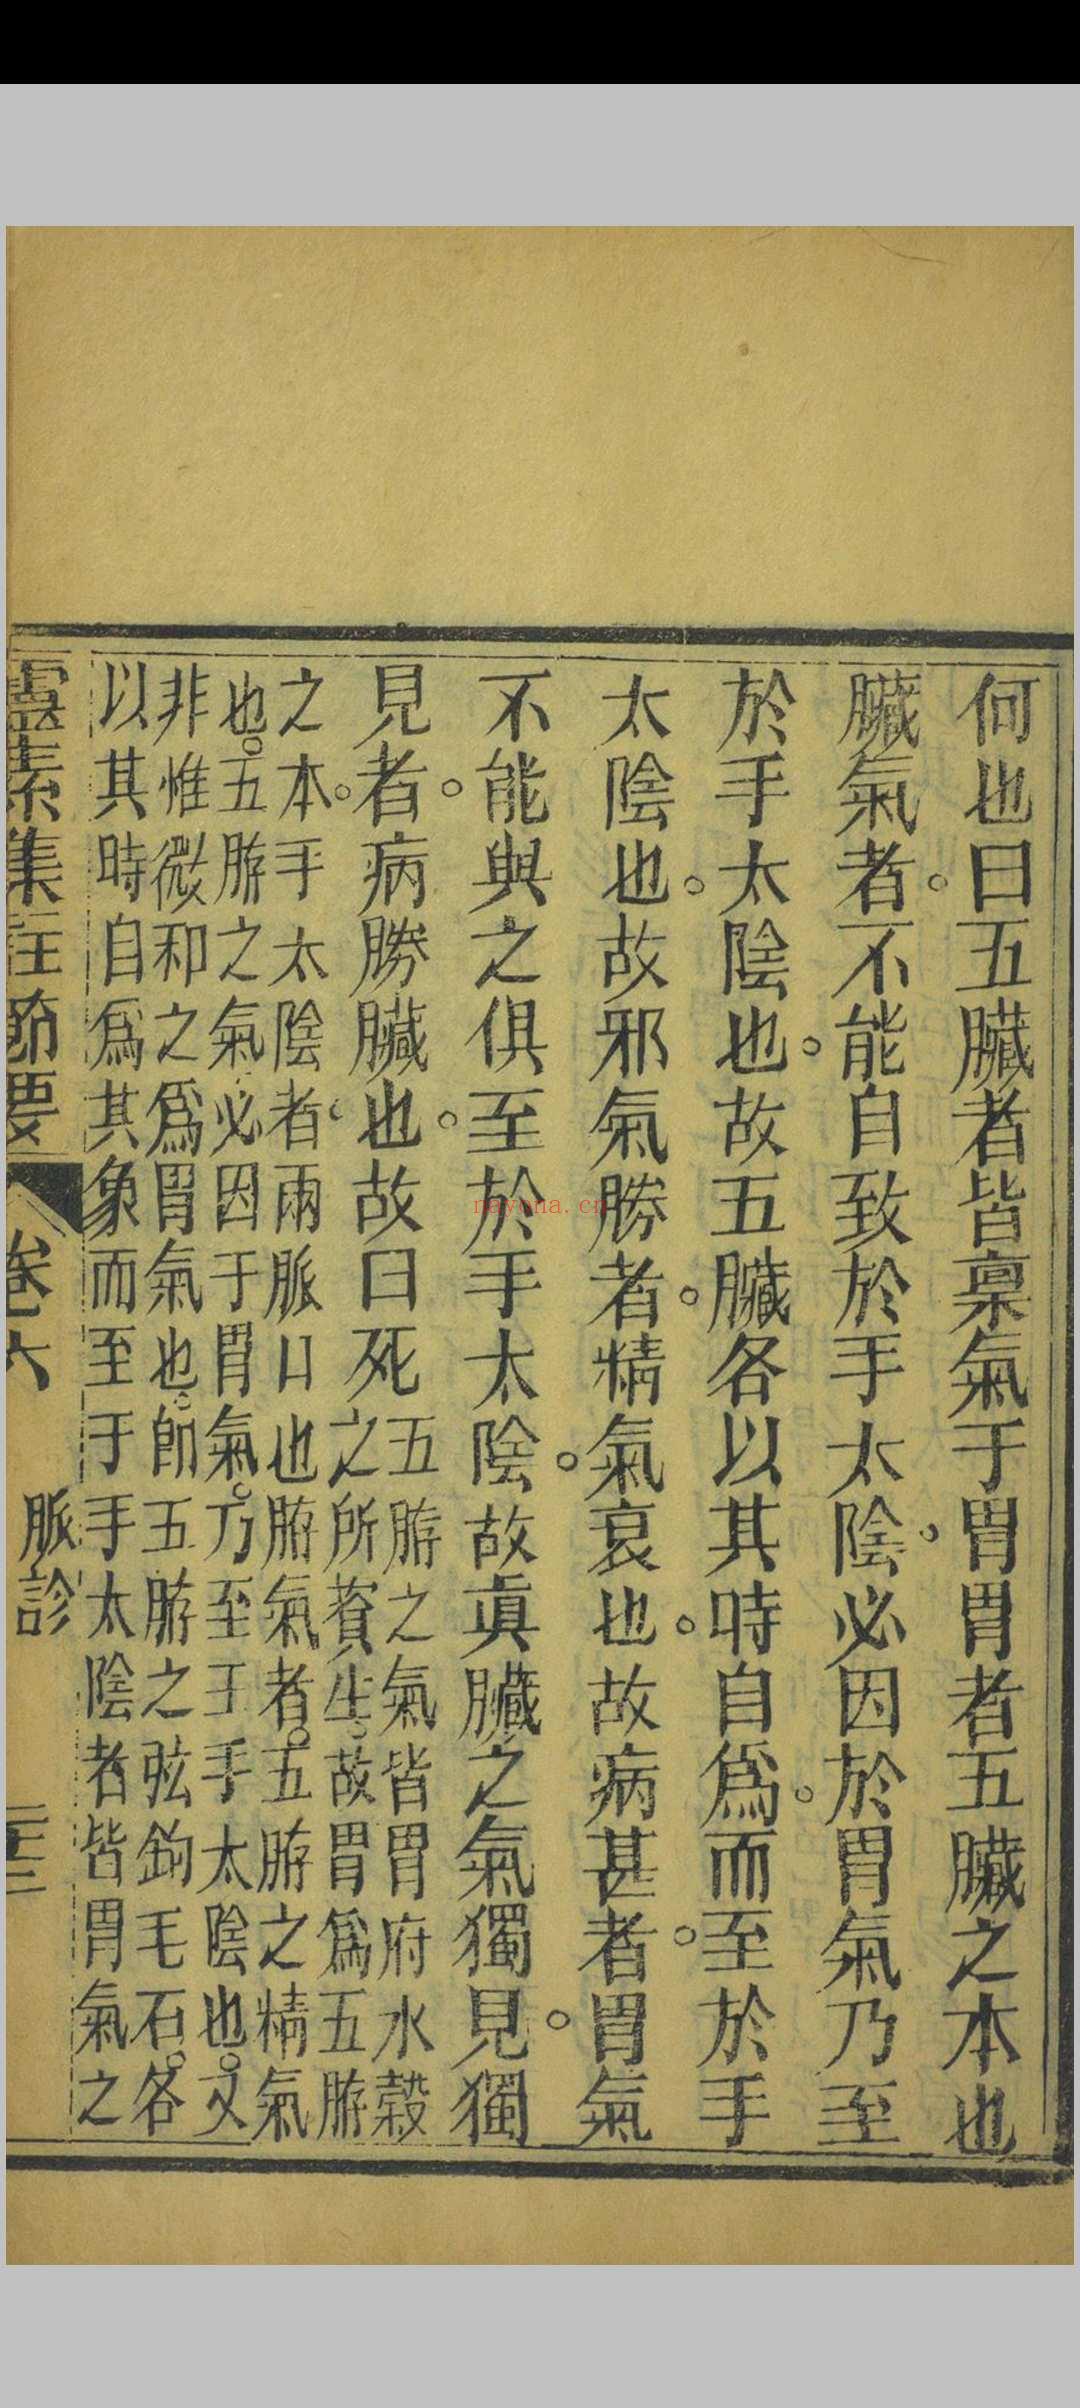 何也曰五臟者皆稟氣于胃胃者五臟之本也
臟氣者。不能自致於手太陰。必因於胃氣乃至
於手太陰也。故五臟各以其時自爲。而至於手
太陰也。故邪氣勝者。精氣衰也。故病甚者。胃氣
不能與之俱至於手太陰。故眞臟之氣獨見。獨
見者。病勝臟也。故曰死
五胕之氣皆胃府水穀
之所資生。故胃爲五胕
之本。手太陰者。兩脈口也胕氣者。五胕之精氣
也。五胕之氣必因于胃氣。乃至于手太陰也。又
非惟微和之爲胃氣也。卽五胕之弦鉤毛石。各
以其時自爲其象而至于手太陰者皆胃氣之
靈素集註節要
卷六
脈診
nayona.cn